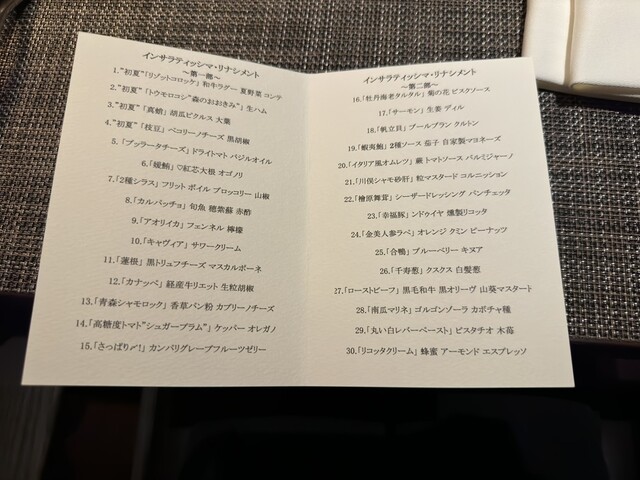 インサラティッシマ・リナシメント
～第一部～
1.“初夏”「リゾットコロッケ」 和牛ラグー 夏野菜 コンテ
2.“初夏”「トウモロコシ“森のおおきみ”」 生ハム
3.“初夏”「真鯵」 胡瓜ピクルス 大葉
4.“初夏”「枝豆」 ペコリーノチーズ 黒胡椒
5.「ブッラータチーズ」 ドライトマト バジルオイル
6.「縞鯵」 ♡紅芯大根 オゴノリ
7.「2種シラス」 フリット ボイル ブロッコリー 山椒
8.「カルパッチョ」 旬魚 穂紫蘇 赤酢
9.「アオリイカ」 フェンネル 檸檬
10.「キャヴィア」 サワークリーム
11.「蓮根」 黒トリュフチーズ マスカルポーネ
12.「カナッペ」 経産牛リエット 生粒胡椒
13.「青森シャモロック」 香草パン粉 カプリーノチーズ
14.「高糖度トマト“シュガープラム”」 ケッパー オレガノ
15.「さっぱり〆!」 カンパリグレープフルーツゼリー
インサラティッシマ・リナシメント
～第二部～
16.「牡丹海老タルタル」 菊の花 ビスクソース
17.「サーモン」 生姜 ディル
18.「帆立貝」 ブールブラン クルトン
19.「蝦夷鮑」 2種ソース 茄子 自家製マヨネーズ
20.「イタリア風オムレツ」 蕨 トマトソース パルミジャーノ
21.「川俣シャモ砂肝」 粒マスタード コルニッション
22.「檜原舞茸」 シーザードレッシング パンチェッタ
23.「幸福豚」 ンドゥイヤ 燻製リコッタ
24.「金美人参ラペ」 オレンジ クミン ピーナッツ
25.「合鴨」 ブルーベリー キヌア
26.「千寿葱」 クスクス 白髪葱
27.「ローストビーフ」 黒毛和牛 黒オリーヴ 山葵マスタード
28.「南瓜マリネ」 ゴルゴンゾーラ カボチャ種
29.「丸い白レバーペースト」 ピスタチオ 木苺
30.「リコッタクリーム」 蜂蜜 アーモンド エスプレッソ